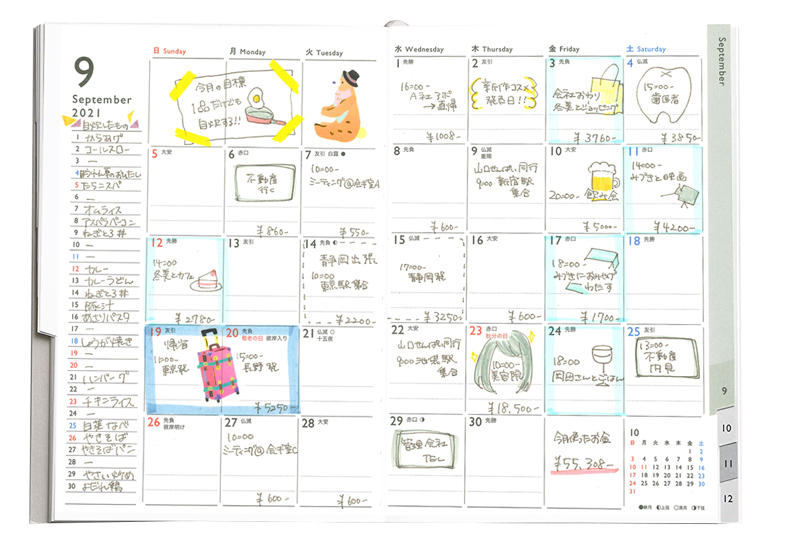 9
September
2021
日 Sunday
月 Monday
火 Tuesday
水 Wednesday
木 Thursday
金 Friday
土 Saturday
September
自炊したもの
1 からあげ
2 コールスロー
3 ー
4
5 たらこスパ
6 ー
7 オムライス
8 アスパラベーコン
9 ねぎとろ丼
10 ー
11 ー
12 カレー
13 カレーうどん
14 ねぎとろ丼
15 豚汁
16 あさりパスタ
17 ー
18 しょうが焼き
19 ー
20 ー
21 ハンバーグ
22 ー
23 チキンライス
24 ー
25 白菜なべ
26 やきそば
27 やきそばパン
28 ー
29 やさい炒め
30 よだれ鶏
今月の目標
1品だけでも
自炊する!!
1 先勝
16:00~
A社アポ
→直帰
¥1008-
2 友引
新作コスメ
発売日!!
3 先負
会社おわり
冬美とショッピング
¥3760-
4 仏滅
15:00~
歯医者
¥3850-
5 大安
6 赤口
不動産
行く
¥860-
7 友引 白露 ●
10:00~
ミーティング@会議室A
¥550-
8 先負
¥600-
9 仏滅
重陽
山口せんぱい同行
9:00 新宿駅
集合
10 大安
20:00~ 飲み会
¥5000-
11 赤口
14:00~
みづきと映画
¥4200-
12 先勝
14:00
冬美とカフェ
¥2780-
13 友引
14 先負
静岡出張
10:00
東京駅集合
¥2200-
15 仏滅
17:00~
静岡発
¥3250-
16 大安
¥600-
17 赤口
18:00~
みづきにおみやげ
わたす
¥1700-
18 先勝
19 友引
帰省
11:00~
東京発
20 先負
敬老の日 彼岸入り
15:00~
長野発
¥5250-
21 仏滅
十五夜
22 大安
山口せんぱい同行
9:00 池袋駅
集合
23 赤口
秋分の日
10:00~
美容院
¥18,500-
24 先勝
18:00~
岡田さんとごはん
25 友引
13:00~
不動産
内見
26 先負
彼岸明け
27 仏滅
10:00
ミーティング@会議室C
¥600-
28 大安
¥600-
29 赤口
管理会社
TEL
30 先勝
今月使ったお金
¥55,308-
10
日 月 火 水 木 金 土
1 2
3 4 5 6 7 8 9
10 11 12 13 14 15 16
17 18 19 20 21 22 23
24 25 26 27 28 29 30
31
●新月 ◐上弦 ○満月 ◑下弦
9
10
11
12